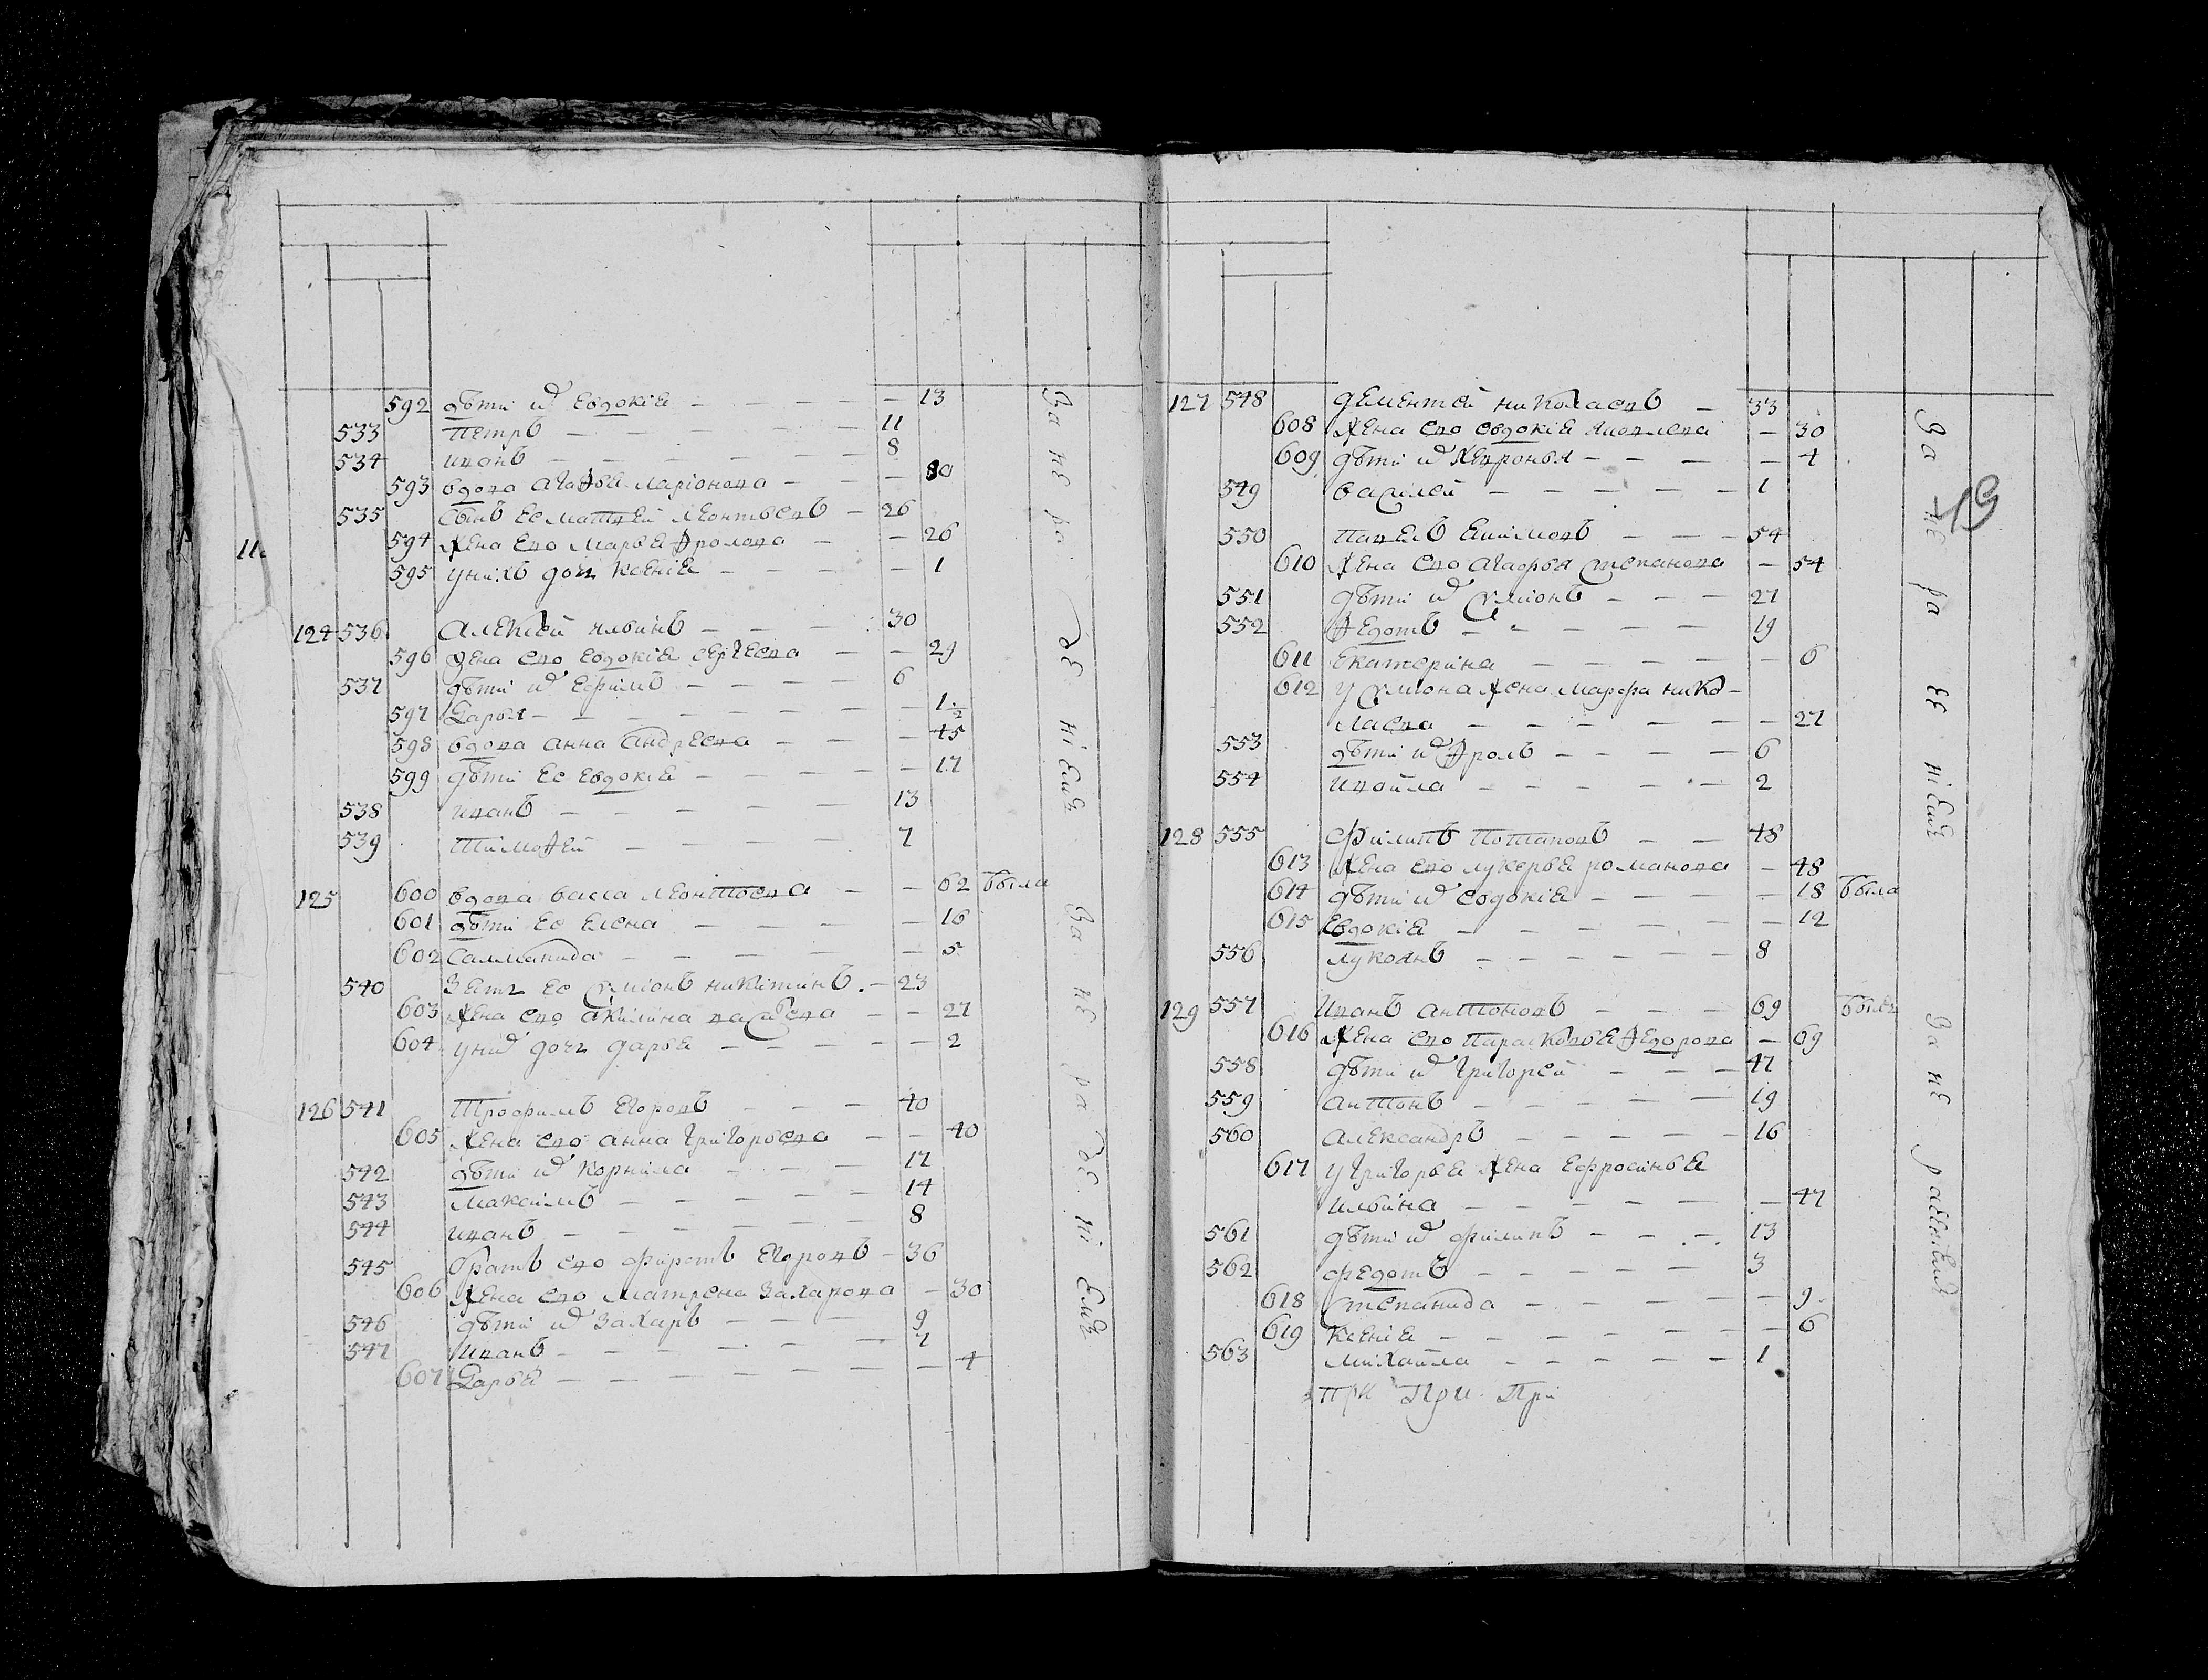 592 дѣти их Евдокіа — 13
533 Петръ — 11
534 иванъ — 8
593 вдова Агафьа Ларіонова — 80
535 сынъ Ее Матвей Леонтьевъ — 26
594 жена Ево Марьа Фролова — 26
595 у них дочь Ксеніа — 1
124 536 Алексѣй ильинъ — 30
596 жена Ево Евдокіа сергеева — 29
537 дѣти их Ефимъ — 6
597 Дарья — 1 1/2
598 вдова Анна Андреева — 45
599 дѣти Ее Евдокіа — 17
538 иванъ — 13
539 Тимофей — 7
125 600 вдова васса Леонтьева — 62 была
601 дѣти Ее Елена — 16
602 Саламанида — 5
540 Зять Ее Симіонъ никитинъ — 23
603 жена Ево акилина васильева — 27
604 у них дочь дарьа — 2
126 541 Трофимъ Егоровъ — 40
605 жена Ево Анна григорьева — 40
542 дѣти их корнила — 17
543 максимъ — 14
544 иванъ — 8
545 братъ Ево фирстъ Егоровъ — 36
606 жена Ево Матрена Захарова — 30
546 дѣти их Захаръ — 9
547 иванъ — 7
607 Дарьа — 4
За не ра де ні Емъ
За не ра де ні Емъ
19
127 548 дементей николаевъ — 33
608 жена Ево Евдокіа яковлева — 30
609 дѣти их хевронья — 4
549 василей — 1
550 павелъ Ефимовъ — 54
610 жена Ево Агафья степанова — 54
551 дѣти их Симіонъ — 27
552 Федотъ — 19
611 Екатерина — 6
612 у Симіона жена Марфа нико-
лаева — 27
553 дѣти их Фролъ — 6
554 иваила — 2
128 555 филипъ Потаповъ — 48
613 жена Ево лукерьа романова — 48
614 дѣти их Евдокіа — 18 была
615 Евдокіа — 12
556 лукоянъ — 8
129 557 иванъ антоновъ — 69 былъ
616 жена Ево Парасковьа Федорова — 69
558 дѣти их григорей — 47
559 антонъ — 19
560 александръ — 16
617 у григорьа жена Ефросиньа
ильина — 47
561 дѣти их филипъ — 13
562 федотъ — 3
618 степанида — 9
619 Ксеніа — 6
563 михаила — 1
при При При
За не ра
За не